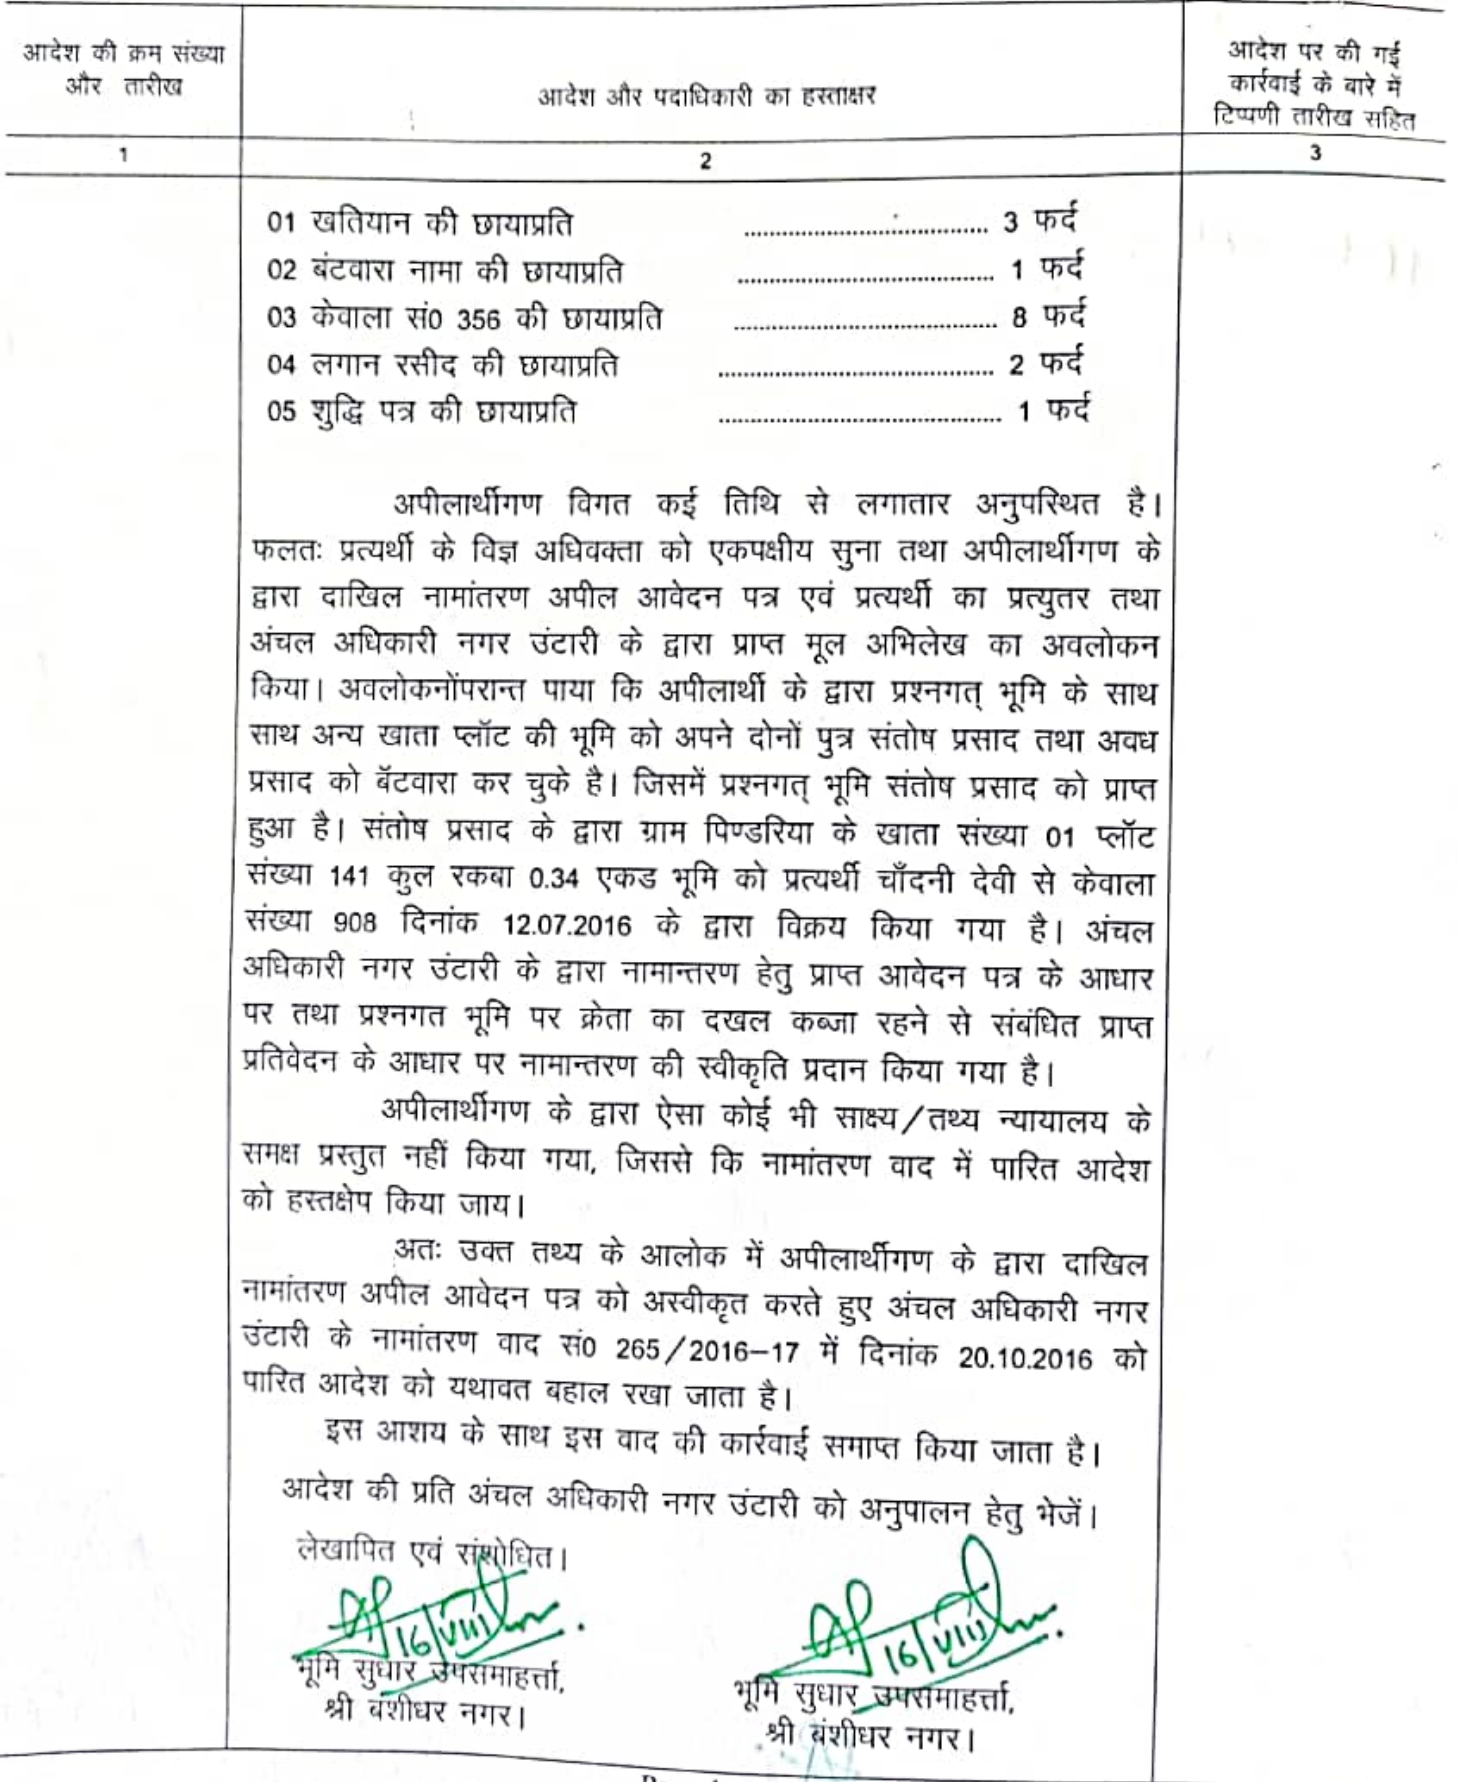 आदेश की क्रम संख्या
और तारीख
आदेश और पदाधिकारी का हस्ताक्षर
आदेश पर की गई
कार्रवाई के बारे में
टिप्पणी तारीख सहित
1
2
3
01 खतियान की छायाप्रति ........................................ 3 फर्द
02 बंटवारा नामा की छायाप्रति ........................................ 1 फर्द
03 केवाला सं0 356 की छायाप्रति ........................................ 8 फर्द
04 लगान रसीद की छायाप्रति ........................................ 2 फर्द
05 शुद्धि पत्र की छायाप्रति ........................................ 1 फर्द
अपीलार्थीगण विगत कई तिथि से लगातार अनुपस्थित है।
फलतः प्रत्यर्थी के विज्ञ अधिवक्ता को एकपक्षीय सुना तथा अपीलार्थीगण के
द्वारा दाखिल नामांतरण अपील आवेदन पत्र एवं प्रत्यर्थी का प्रत्युतर तथा
अंचल अधिकारी नगर उंटारी के द्वारा प्राप्त मूल अभिलेख का अवलोकन
किया। अवलोकनोंपरान्त पाया कि अपीलार्थी के द्वारा प्रश्नगत् भूमि के साथ
साथ अन्य खाता प्लॉट की भूमि को अपने दोनों पुत्र संतोष प्रसाद तथा अवध
प्रसाद को बॅटवारा कर चुके है। जिसमें प्रश्नगत् भूमि संतोष प्रसाद को प्राप्त
हुआ है। संतोष प्रसाद के द्वारा ग्राम पिण्डरिया के खाता संख्या 01 प्लॉट
संख्या 141 कुल रकबा 0.34 एकड भूमि को प्रत्यर्थी चाँदनी देवी से केवाला
संख्या 908 दिनांक 12.07.2016 के द्वारा विक्रय किया गया है। अंचल
अधिकारी नगर उंटारी के द्वारा नामान्तरण हेतु प्राप्त आवेदन पत्र के आधार
पर तथा प्रश्नगत भूमि पर क्रेता का दखल कब्जा रहने से संबंधित प्राप्त
प्रतिवेदन के आधार पर नामान्तरण की स्वीकृति प्रदान किया गया है।
अपीलार्थीगण के द्वारा ऐसा कोई भी साक्ष्य/तथ्य न्यायालय के
समक्ष प्रस्तुत नहीं किया गया, जिससे कि नामांतरण वाद में पारित आदेश
को हस्तक्षेप किया जाय।
अतः उक्त तथ्य के आलोक में अपीलार्थीगण के द्वारा दाखिल
नामांतरण अपील आवेदन पत्र को अस्वीकृत करते हुए अंचल अधिकारी नगर
उंटारी के नामांतरण वाद सं0 265/2016–17 में दिनांक 20.10.2016 को
पारित आदेश को यथावत बहाल रखा जाता है।
इस आशय के साथ इस वाद की कार्रवाई समाप्त किया जाता है।
आदेश की प्रति अंचल अधिकारी नगर उंटारी को अनुपालन हेतु भेजें।
लेखापित एवं संशोधित।
16/VIII
16/VIII
भूमि सुधार उपसमाहर्त्ता,
श्री बंशीधर नगर।
भूमि सुधार उपसमाहर्त्ता,
श्री बंशीधर नगर।